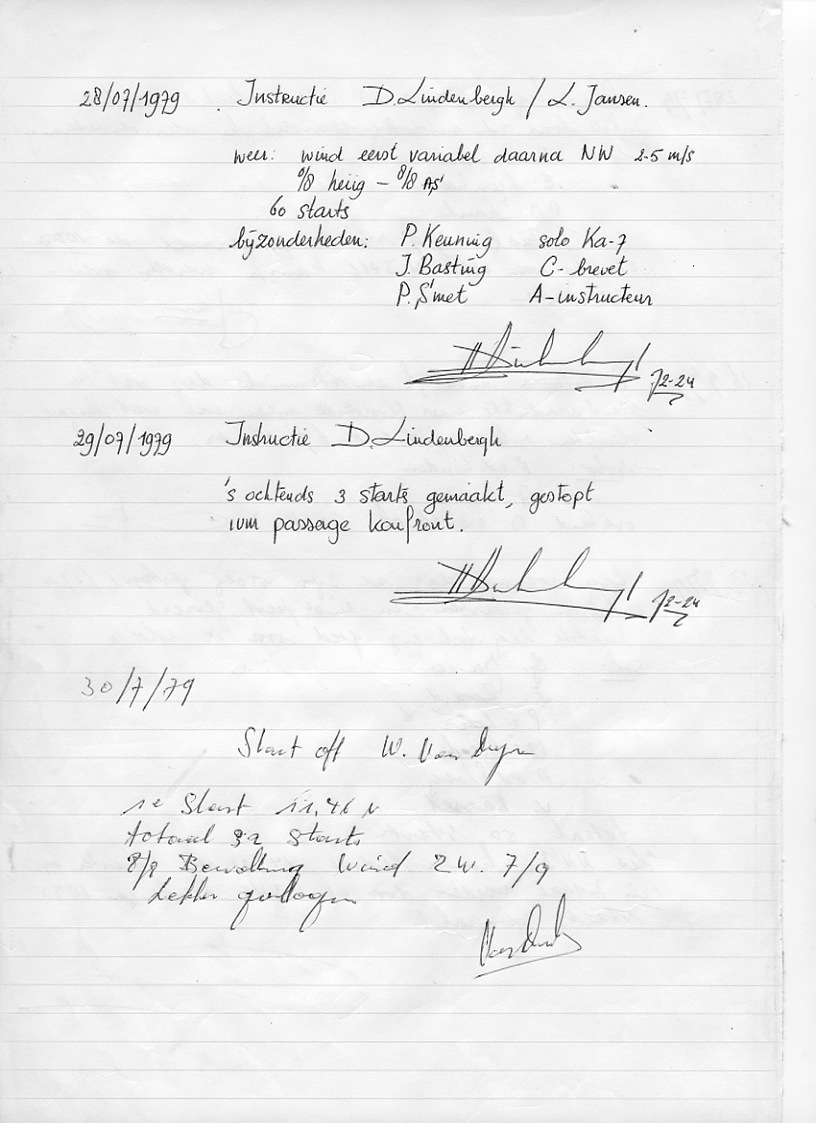 28/07/1979 Instructie D. Lindenbergh / L. Jansen.
weer: wind eerst variabel daarna NW 2-5 m/s
0/8 heiig - 8/8 AS
60 starts
bijzonderheden: P. Keuning solo Ka-7
J. Basting C-brevet
P. Smet A-instructeur
72-24
29/07/1979 Instructie D. Lindenbergh
's ochtends 3 starts gemaakt, gestopt
ivm passage koufront.
72-24
30/7/79
Start off W. Van
1e Start 11,46 N
totaal 32 starts
8/8 Bewolking Wind ZW. 7/9
Lekker gevlogen